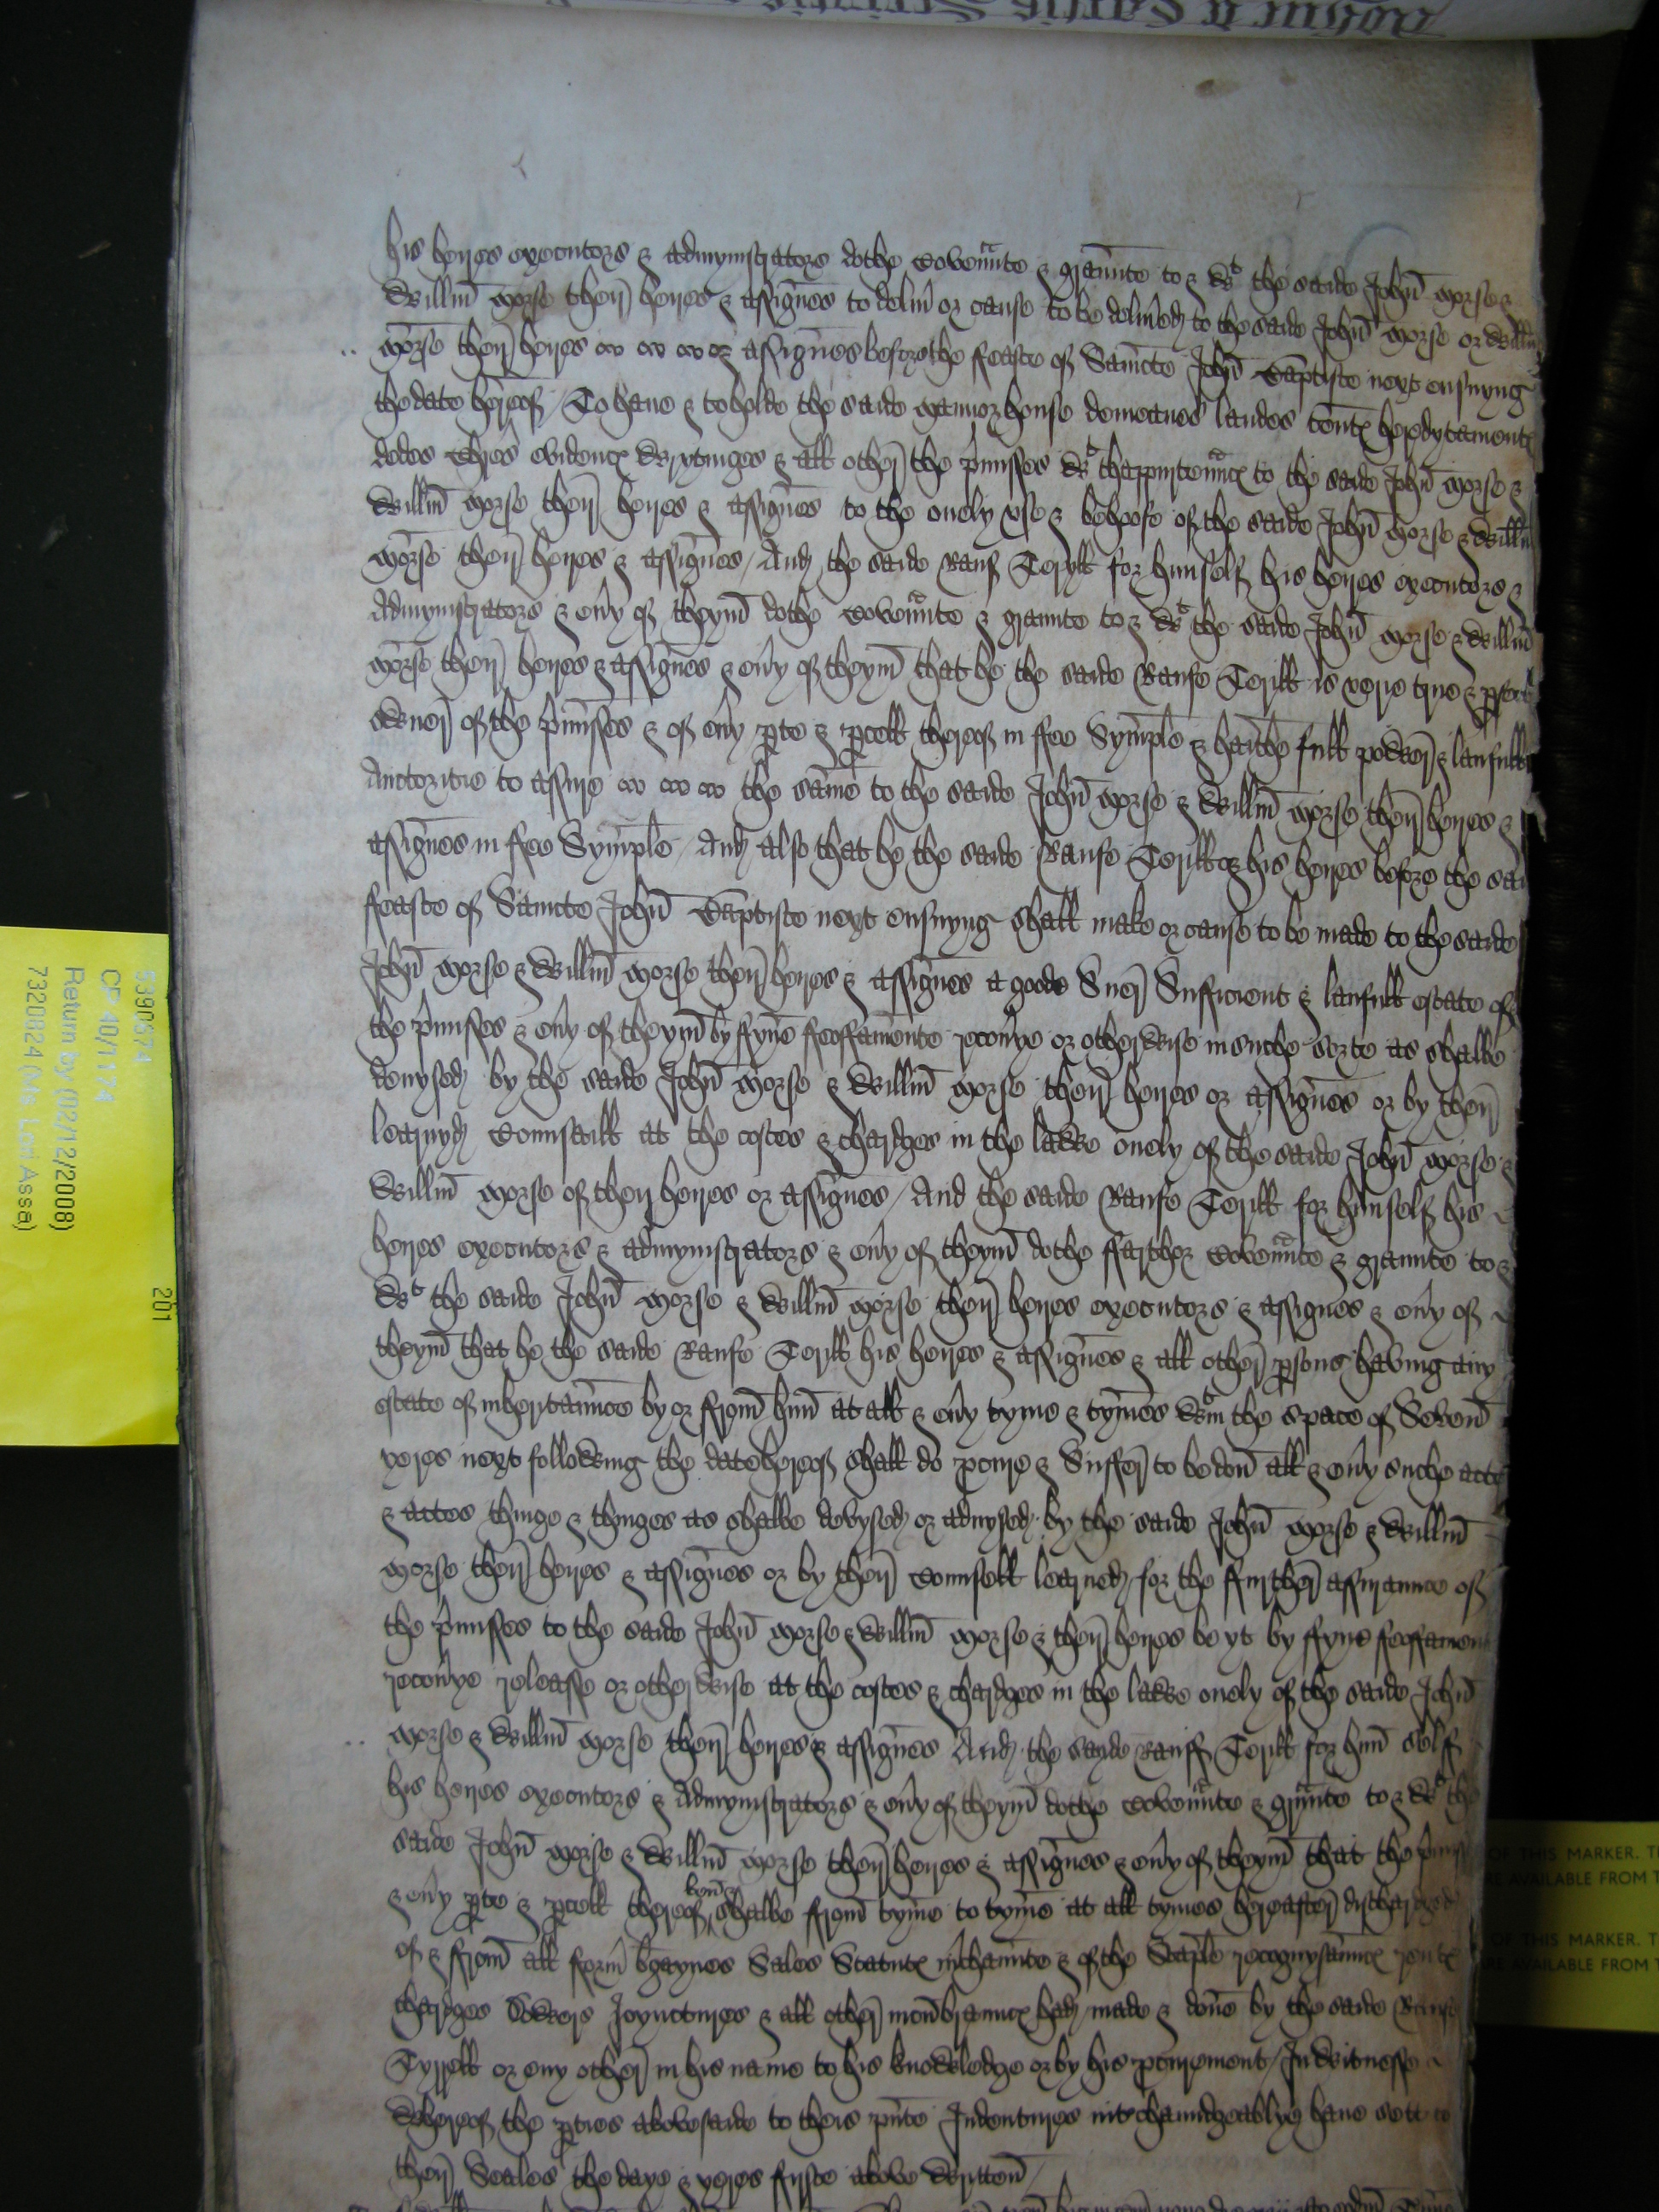 his heyres executors & admynistrators dothe Covennte & graunte to & wt the saide John Morse &
Willm Morse theyr heyres & assignes to delivr or cause to be delivred to the saide John Morse or Willm
Morse theyr heyres or assignes before the feaste of Saincte John Baptiste next ensuyng
the date hereof / To have & to holde the saide mannor house demeanes landes tents heredytaments
dedes evidencs wrytinges & all other the pmisses wt thappurtennncs to the saide John Morse &
Willm Morse theyr heyres & assignes to the onely use & behoofe of the saide John Morse & Willm
Morse theyr heyres & assignes / And the saide Rauf Teryll for hymself his heyres executors &
Admynistrators & evry of theym dothe Covennte & graunte to & wt the saide John Morse & Willm
Morse theyr heyres & assignes & evry of theym that he the saide Raufe Terill is verie true &
owner of the pmisses & of evry pte & pcell thereof in fee Symple & hathe full power & laufull
Auctoritie to assure the same to the saide John Morse & Willm Morse theyr heyres &
assignes in fee Symple / And also that he the saide Raufe Terill or his heyres before the
ffeaste of Saincte John Baptiste next ensuyng shall make or cause to be made to the saide
John Morse & Willm Morse theyr heyres & assignes a goode Suer Sufficient & laufull estate of
the pmisses & evry of theym by ffyne feoffamente recovrye or otherwise in suche sorte as shalbe
devysed by the saide John Morse & Willm Morse theyr heyres or assignes or by theyr
learnyd Counsaill at the costes & chardges in the lawe onely of the saide John Morse &
Willm Morse of theyr heyres or assignes / And the saide Raufe Terill for hymself his
heyres executors & admynistrators & evry of theym dothe ffarther Covennte & graunte to &
wt the saide John Morse & Willm Morse theyr heyres executors & assignes & evry of
theym that he the saide Raufe Terill his heyres & assignes & all other psons having any
estate of inheritaunce by or ffrom hym at all & evry tyme & tymes wtin the space of Seven
yeres next following the date hereof shall do pcure & Suffer to be don all & evry suche acte
& actes thinge & thinges as shalbe devysed or advysed by the saide John Morse & Willm
Morse theyr heyres & assignes or by theyr Counsell learned for the further assuraunce of
the pmisses to the saide John Morse & Willm Morse & theyr heyres be yt by ffyne feoffament
recovrye releasse or otherwise at the costes & chardges in the lawe onely of the saide John
Morse & Willm Morse theyr heyres & assignes And the sayde Rauff Terill for hym self
his heyres executors & Admynistrators & evry of theym dothe Covennte & grunte to & wt the
saide John Morse & Willm Morse theyr heyres & assignes & evry of theym that the pmiss
& evry pte & pcell thereof shalbe from tyme to tyme at all tymes hereafter dischardged
of & ffrom all formr bgaynes Sales Statuts mrchaunte & of the Staple recognysauncs rents
chardges Dowers Joynctures & all other incumbrauncs had made & done by the saide Raufe
Tyrell or eny other in his name to his knowledge or by his pcurement / In Witnesse
Whereof the pties abovesaide to theis pnte Indentures intrchaundgeablye have sett to
theyr Seales the daye & yeres firste above Written
5390574
CP 40/1174
Return by (02/12/2008)
7320824 (Ms. Lori Assa)
201
OF THIS MARKER. T
RE AVAILABLE FROM T
OF THIS MARKER. T
RE AVAILABLE FROM T